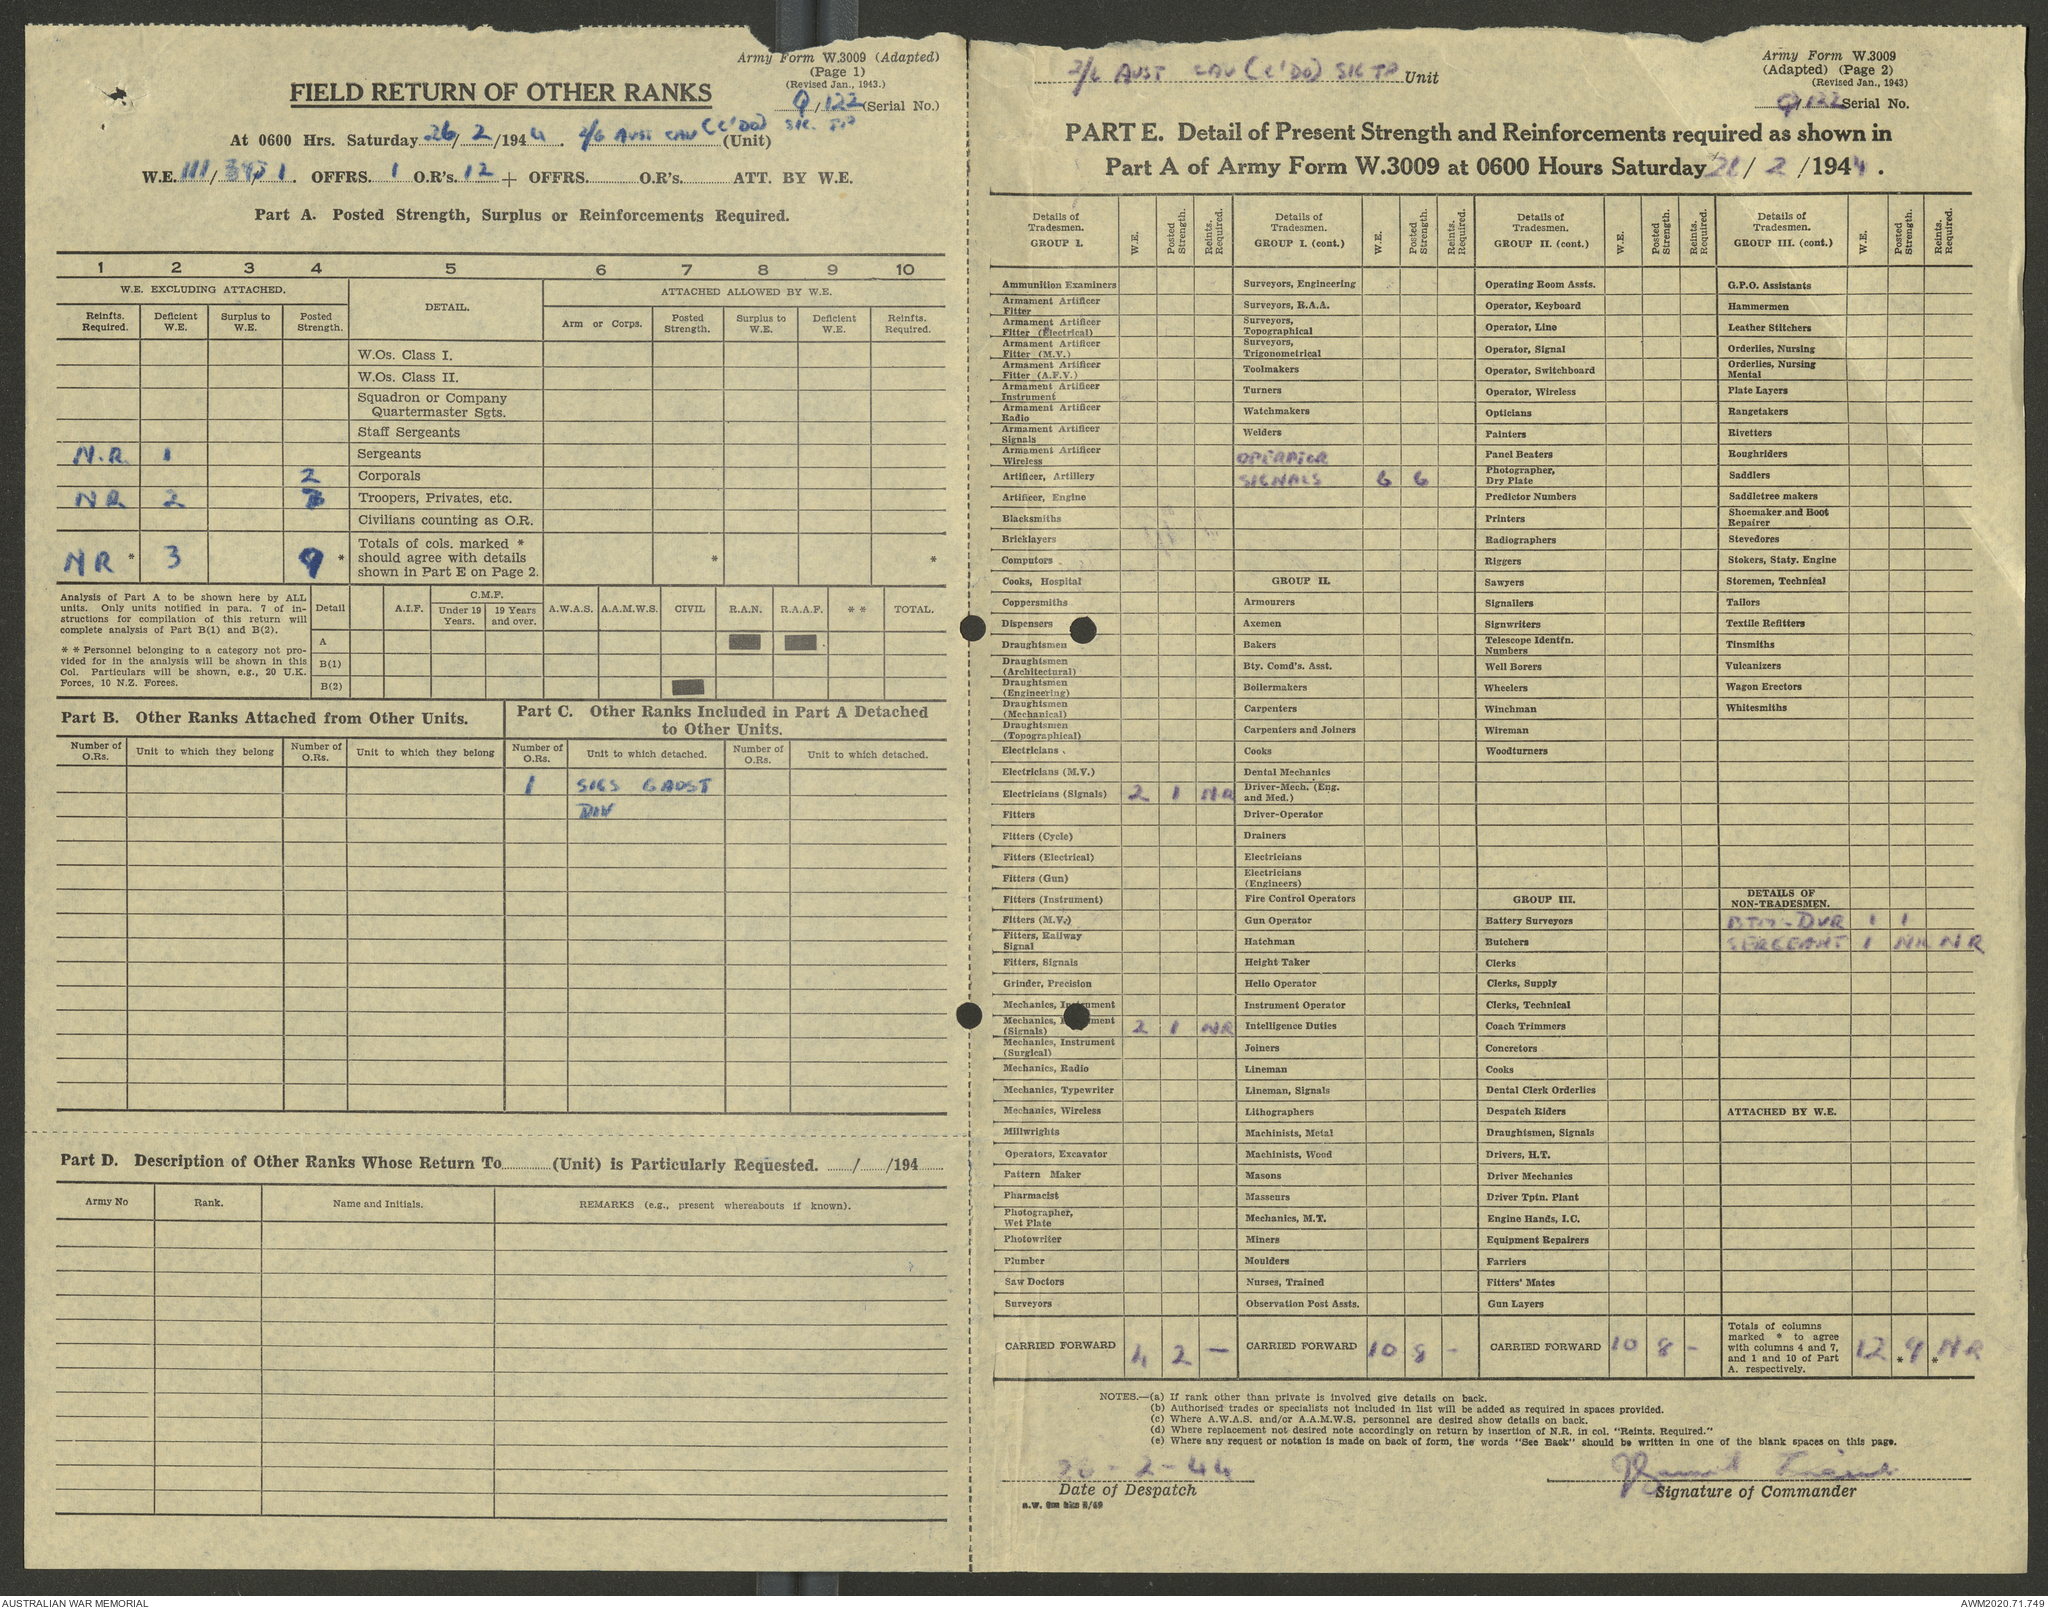 Army Form W.3009 (Adapted)
(Page 1)
(Revised Jan., 1943.)
FIELD RETURN OF OTHER RANKS
9/122 (Serial No.)
At 0600 Hrs. Saturday 26/2/1944. 2/6 AUST CAV (C'DO) SIG. TP (Unit)
W.E. 111/ /1. OFFRS. 1 O.R's. 12 + OFFRS. O.R's. ATT. BY W.E.
Part A. Posted Strength, Surplus or Reinforcements Required.
1 2 3 4 5 6 7 8 9 10
W.E. EXCLUDING ATTACHED. DETAIL. ATTACHED ALLOWED BY W.E.
Reinfts. Required. Deficient W.E. Surplus to W.E. Posted Strength. Arm or Corps. Posted Strength. Surplus to W.E. Deficient W.E. Reinfts. Required.
W.Os. Class I.
W.Os. Class II.
Squadron or Company
Quartermaster Sgts.
Staff Sergeants
N.R 1 Sergeants
2 Corporals
NR 2 Troopers, Privates, etc.
Civilians counting as O.R.
NR * 3 9 * Totals of cols. marked *
should agree with details * *
shown in Part E on Page 2.
Analysis of Part A to be shown here by ALL
units. Only units notified in para. 7 of in-
structions for compilation of this return will
complete analysis of Part B(1) and B(2).
* * Personnel belonging to a category not pro-
vided for in the analysis will be shown in this
Col. Particulars will be shown, e.g., 20 U.K.
Forces, 10 N.Z. Forces.
Detail A.I.F. C.M.F. Under 19 Years. 19 Years and over. A.W.A.S. A.A.M.W.S. CIVIL R.A.N. R.A.A.F. * * TOTAL.
A
B(1)
B(2)
Part B. Other Ranks Attached from Other Units.
Number of O.Rs. Unit to which they belong Number of O.Rs. Unit to which they belong
Part C. Other Ranks Included in Part A Detached
to Other Units.
Number of O.Rs. Unit to which detached. Number of O.Rs. Unit to which detached.
1 SIGS 6 AUST
DIV
Part D. Description of Other Ranks Whose Return To (Unit) is Particularly Requested. / /194
Army No Rank. Name and Initials. REMARKS (e.g., present whereabouts if known).
2/6 AUST CAV (C'DO) SIG TP Unit
Army Form W.3009
(Adapted) (Page 2)
(Revised Jan., 1943)
9/122 Serial No.
PART E. Detail of Present Strength and Reinforcements required as shown in
Part A of Army Form W.3009 at 0600 Hours Saturday 26/2/1944.
Details of Tradesmen. GROUP I. W.E. Posted Strength. Reints. Required.
Ammunition Examiners
Armament Artificer Fitter
Armament Artificer Fitter (Electrical)
Armament Artificer Fitter (M.V.)
Armament Artificer Fitter (A.F.V.)
Armament Artificer Instrument
Armament Artificer Radio
Armament Artificer Signals
Armament Artificer Wireless
Artificer, Artillery
Artificer, Engine
Blacksmiths
Bricklayers
Computors
Cooks, Hospital
Coppersmiths
Dispensers
Draughtsmen
Draughtsmen (Architectural)
Draughtsmen (Engineering)
Draughtsmen (Mechanical)
Draughtsmen (Topographical)
Electricians
Electricians (M.V.)
Electricians (Signals) 2 1 NR
Fitters
Fitters (Cycle)
Fitters (Electrical)
Fitters (Gun)
Fitters (Instrument)
Fitters (M.V.)
Fitters, Railway Signal
Fitters, Signals
Grinder, Precision
Mechanics, Instrument
Mechanics, Instrument (Signals) 2 1 NR
Mechanics, Instrument (Surgical)
Mechanics, Radio
Mechanics, Typewriter
Mechanics, Wireless
Millwrights
Operators, Excavator
Pattern Maker
Pharmacist
Photographer, Wet Plate
Photowriter
Plumber
Saw Doctors
Surveyors
CARRIED FORWARD 4 2 -
Details of Tradesmen. GROUP I. (cont.) W.E. Posted Strength. Reints. Required.
Surveyors, Engineering
Surveyors, R.A.A.
Surveyors, Topographical
Surveyors, Trigonometrical
Toolmakers
Turners
Watchmakers
Welders
OPERATOR
SIGNALS 6 6
GROUP II.
Armourers
Axemen
Bakers
Bty. Comd's. Asst.
Boilermakers
Carpenters
Carpenters and Joiners
Cooks
Dental Mechanics
Driver-Mech. (Eng. and Med.)
Driver-Operator
Drainers
Electricians
Electricians (Engineers)
Fire Control Operators
Gun Operator
Hatchman
Height Taker
Helio Operator
Instrument Operator
Intelligence Duties
Joiners
Lineman
Lineman, Signals
Lithographers
Machinists, Metal
Machinists, Wood
Masons
Masseurs
Mechanics, M.T.
Miners
Moulders
Nurses, Trained
Observation Post Assts.
CARRIED FORWARD 10 8 -
Details of Tradesmen. GROUP II. (cont.) W.E. Posted Strength. Reints. Required.
Operating Room Assts.
Operator, Keyboard
Operator, Line
Operator, Signal
Operator, Switchboard
Operator, Wireless
Opticians
Painters
Panel Beaters
Photographer, Dry Plate
Predictor Numbers
Printers
Radiographers
Riggers
Sawyers
Signallers
Signwriters
Telescope Identfn. Numbers
Well Borers
Wheelers
Winchman
Wireman
Woodturners
GROUP III.
Battery Surveyors
Butchers
Clerks
Clerks, Supply
Clerks, Technical
Coach Trimmers
Concretors
Cooks
Dental Clerk Orderlies
Despatch Riders
Draughtsmen, Signals
Drivers, H.T.
Driver Mechanics
Driver Tptn. Plant
Engine Hands, I.C.
Equipment Repairers
Farriers
Fitters' Mates
Gun Layers
CARRIED FORWARD 10 8 -
Details of Tradesmen. GROUP III. (cont.) W.E. Posted Strength. Reints. Required.
G.P.O. Assistants
Hammermen
Leather Stitchers
Orderlies, Nursing
Orderlies, Nursing Mental
Plate Layers
Rangetakers
Rivetters
Roughriders
Saddlers
Saddletree makers
Shoemaker and Boot Repairer
Stevedores
Stokers, Staty. Engine
Storemen, Technical
Tailors
Textile Refitters
Tinsmiths
Vulcanizers
Wagon Erectors
Whitesmiths
DETAILS OF NON-TRADESMEN.
BTM-DVR 1 1
SERGEANT 1 NR NR
ATTACHED BY W.E.
Totals of columns
marked * to agree
with columns 4 and 7,
and 1 and 10 of Part
A. respectively. 12 * 9 * NR
NOTES.—(a) If rank other than private is involved give details on back.
(b) Authorised trades or specialists not included in list will be added as required in spaces provided.
(c) Where A.W.A.S. and/or A.A.M.W.S. personnel are desired show details on back.
(d) Where replacement not desired note accordingly on return by insertion of N.R. in col. "Reints. Required."
(e) Where any request or notation is made on back of form, the words "See Back" should be written in one of the blank spaces on this page.
26-2-44
Date of Despatch
Signature of Commander
AUSTRALIAN WAR MEMORIAL
AWM2020.71.749